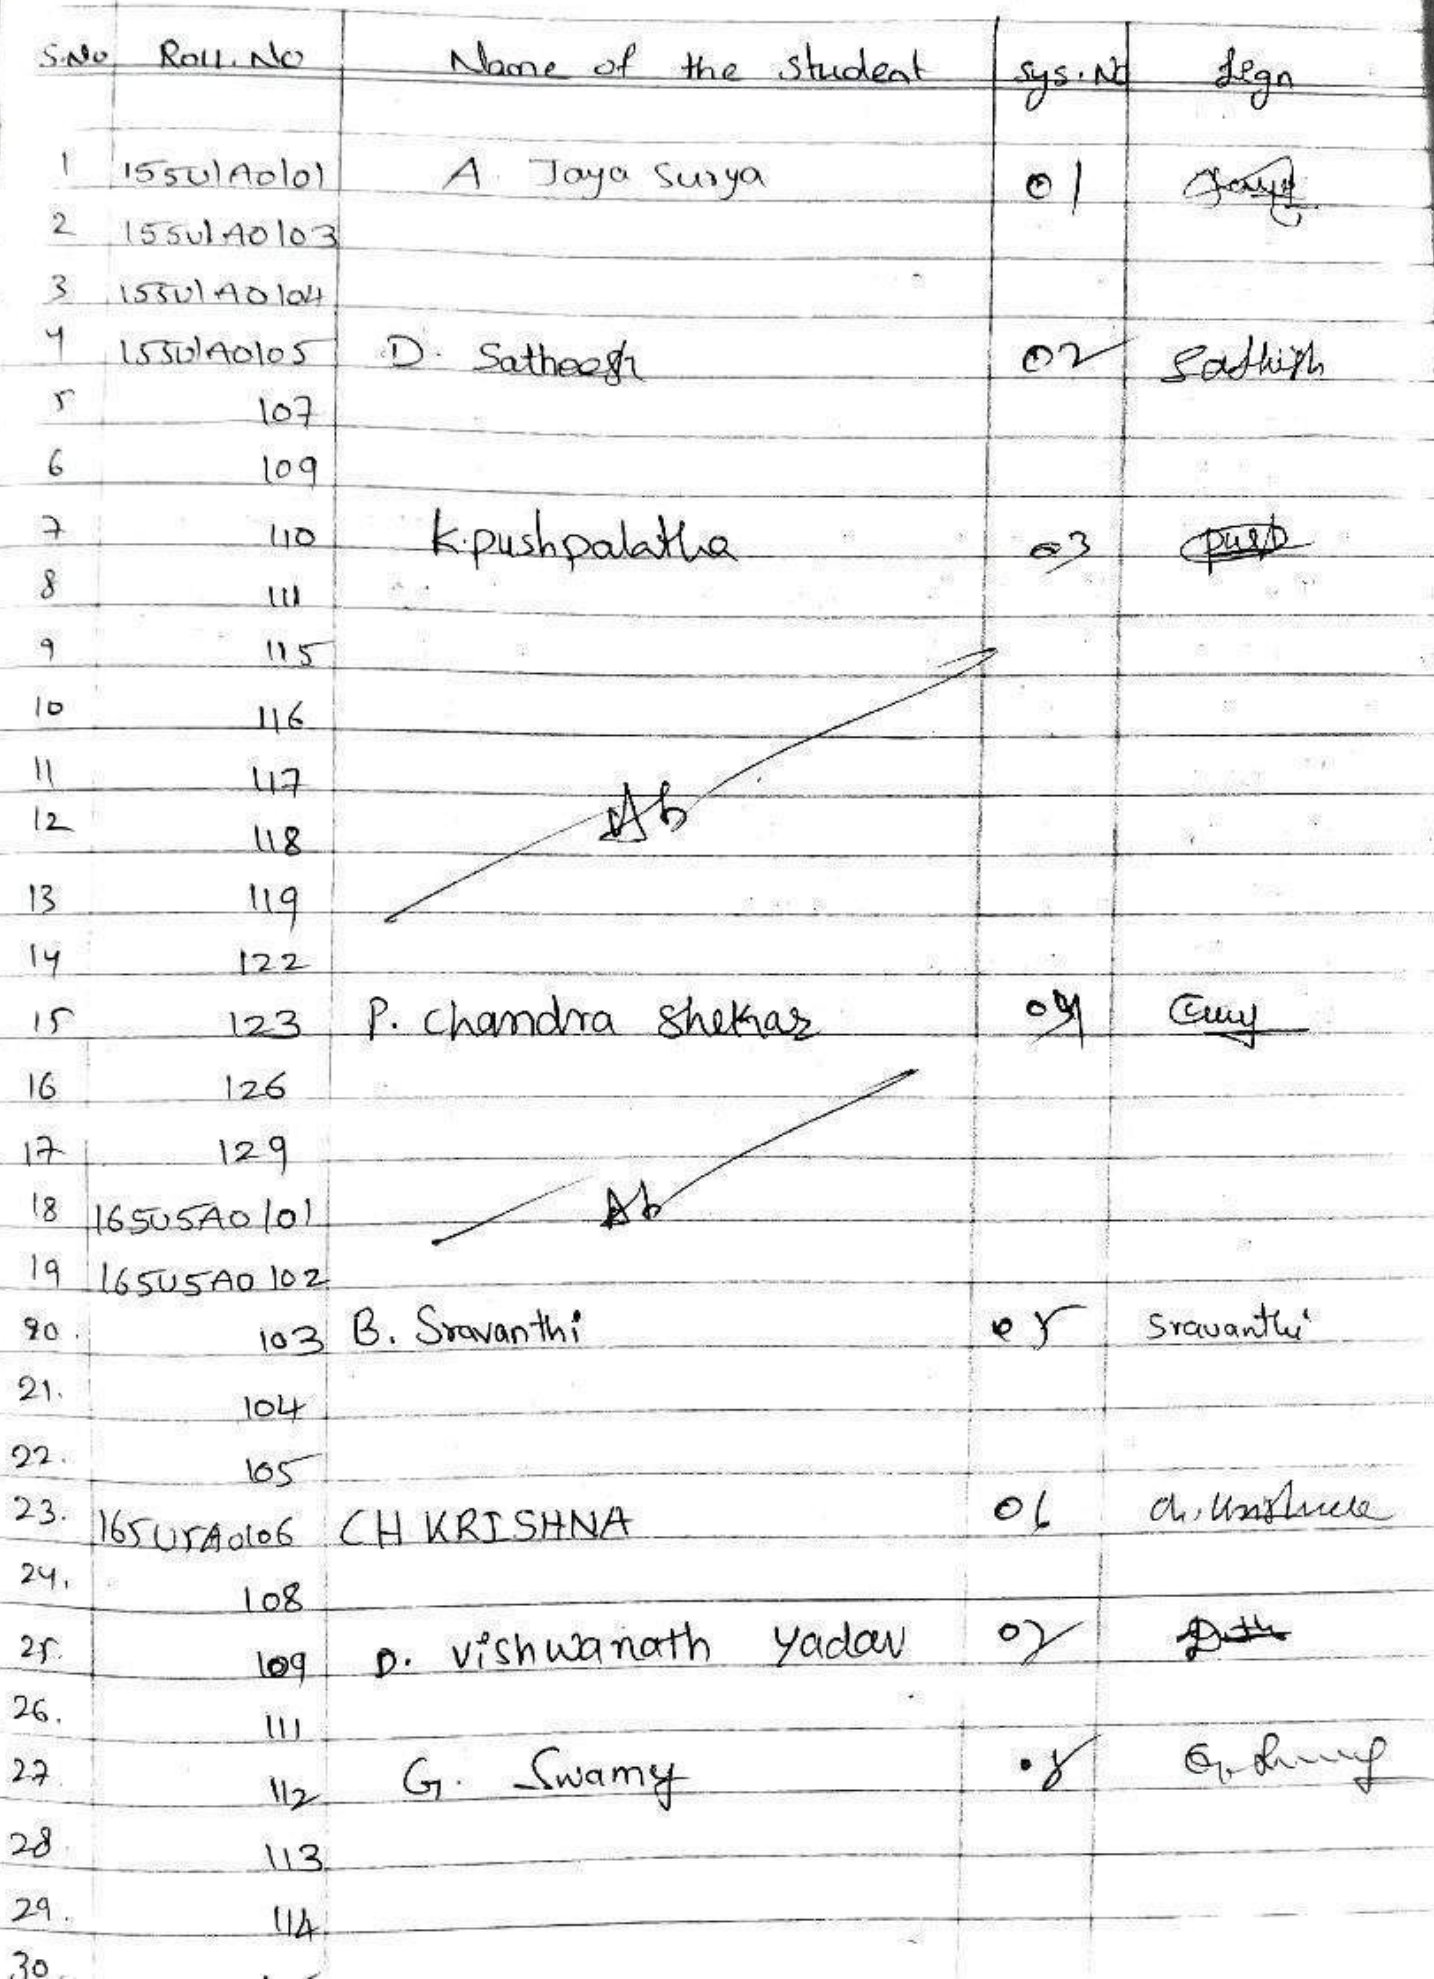 S.No Roll.No Name of the student Sys.No Sign
1 155U1A0101 A. Jaya Surya 01
2 155U1A0103
3 155U1A0104
4 155U1A0105 D. Satheesh 02 Sathish
5 107
6 109
7 110 K.pushpalatha 03 pusp
8 111
9 115
10 116
11 117
Ab
12 118
13 119
14 122
15 123 P. Chandra Shekar 04
16 126
17 129
18 165U5A0101 Ab
19 165U5A0102
20. 103 B. Sravanthi 05 Sravanthi
21. 104
22. 105
23. 165U5A0106 CH KRISHNA 06 Ch. Krishna
24. 108
25. 109 D. Vishwanath Yadav 07
26. 111
27 112 G. Swamy 08
28. 113
29. 114
30